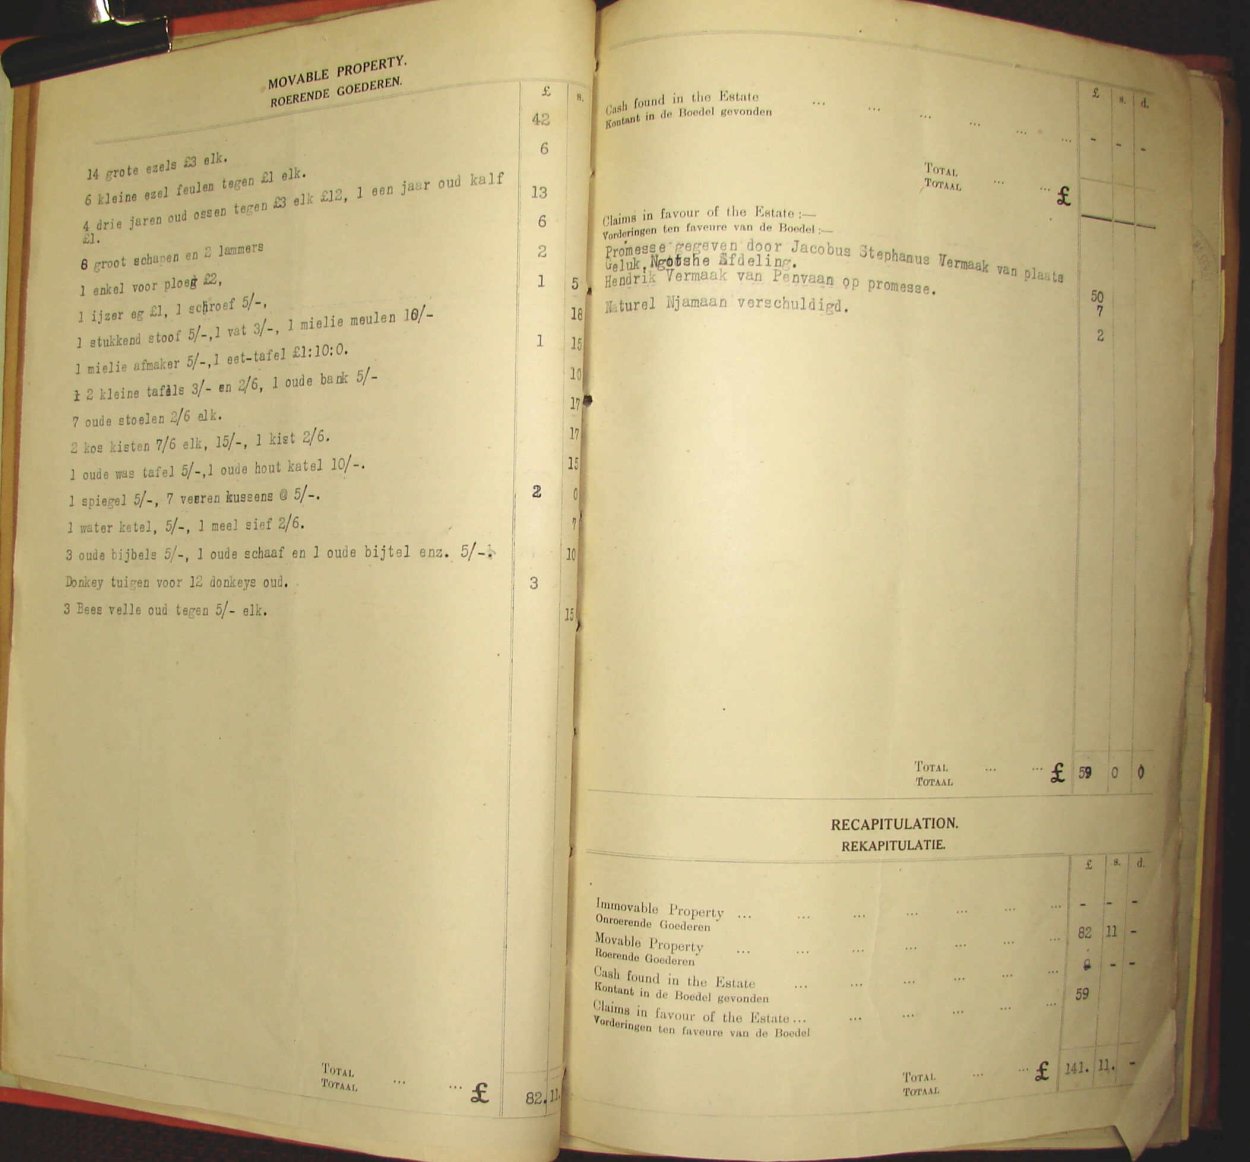 MOVABLE PROPERTY.
ROERENDE GOEDEREN.
£ s.
14 grote ezels £3 elk. 42
6 kleine ezel feulen tegen £1 elk. 6
4 drie jaren oud ossen tegen £3 elk £12, 1 een jaar oud kalf
£1. 13
6 groot schapen en 2 lammers 6
1 enkel voor ploeg £2, 2
1 ijzer eg £1, 1 schroef 5/-, 1 5
1 stukkend stoof 5/-,1 vat 3/-, 1 mielie meulen 10/- 18
1 mielie afmaker 5/-,1 eet-tafel £1:10:0. 1 15
2 kleine tafels 3/- en 2/6, 1 oude bank 5/- 10
7 oude stoelen 2/6 elk. 17
2 kos kisten 7/6 elk, 15/-, 1 kist 2/6. 17
1 oude was tafel 5/-,1 oude hout katel 10/-. 15
1 spiegel 5/-, 7 veeren kussens @ 5/-. 2 0
1 water ketel, 5/-, 1 meel sief 2/6. 7
3 oude bijbels 5/-, 1 oude schaaf en 1 oude bijtel enz. 5/-. 10
Donkey tuigen voor 12 donkeys oud. 3
3 Bees velle oud tegen 5/- elk. 15
TOTAL
TOTAAL ... ... £ 82. 11.
£ s. d.
Cash found in the Estate
Kontant in de Boedel gevonden ... ... ... ... ... ... - - -
TOTAL
TOTAAL ... ... £
Claims in favour of the Estate :—
Vorderingen ten faveure van de Boedel :—
Promesse gegeven door Jacobus Stephanus Vermaak van plaats
Geluk, Ngotshe Afdeling. 50
Hendrik Vermaak van Penvaan op promesse. 7
Naturel Njamaan verschuldigd. 2
TOTAL
TOTAAL ... ... £ 59 0 0
RECAPITULATION.
REKAPITULATIE.
£ s. d.
Immovable Property ... ... ... ... ... ... ... - - -
Onroerende Goederen
Movable Property ... ... ... ... ... ... ... 82 11 -
Roerende Goederen
Cash found in the Estate ... ... ... ... ... ... - -
Kontant in de Boedel gevonden
Claims in favour of the Estate ... ... ... ... ... 59
Vorderingen ten faveure van de Boedel
TOTAL
TOTAAL ... ... £ 141. 11. -